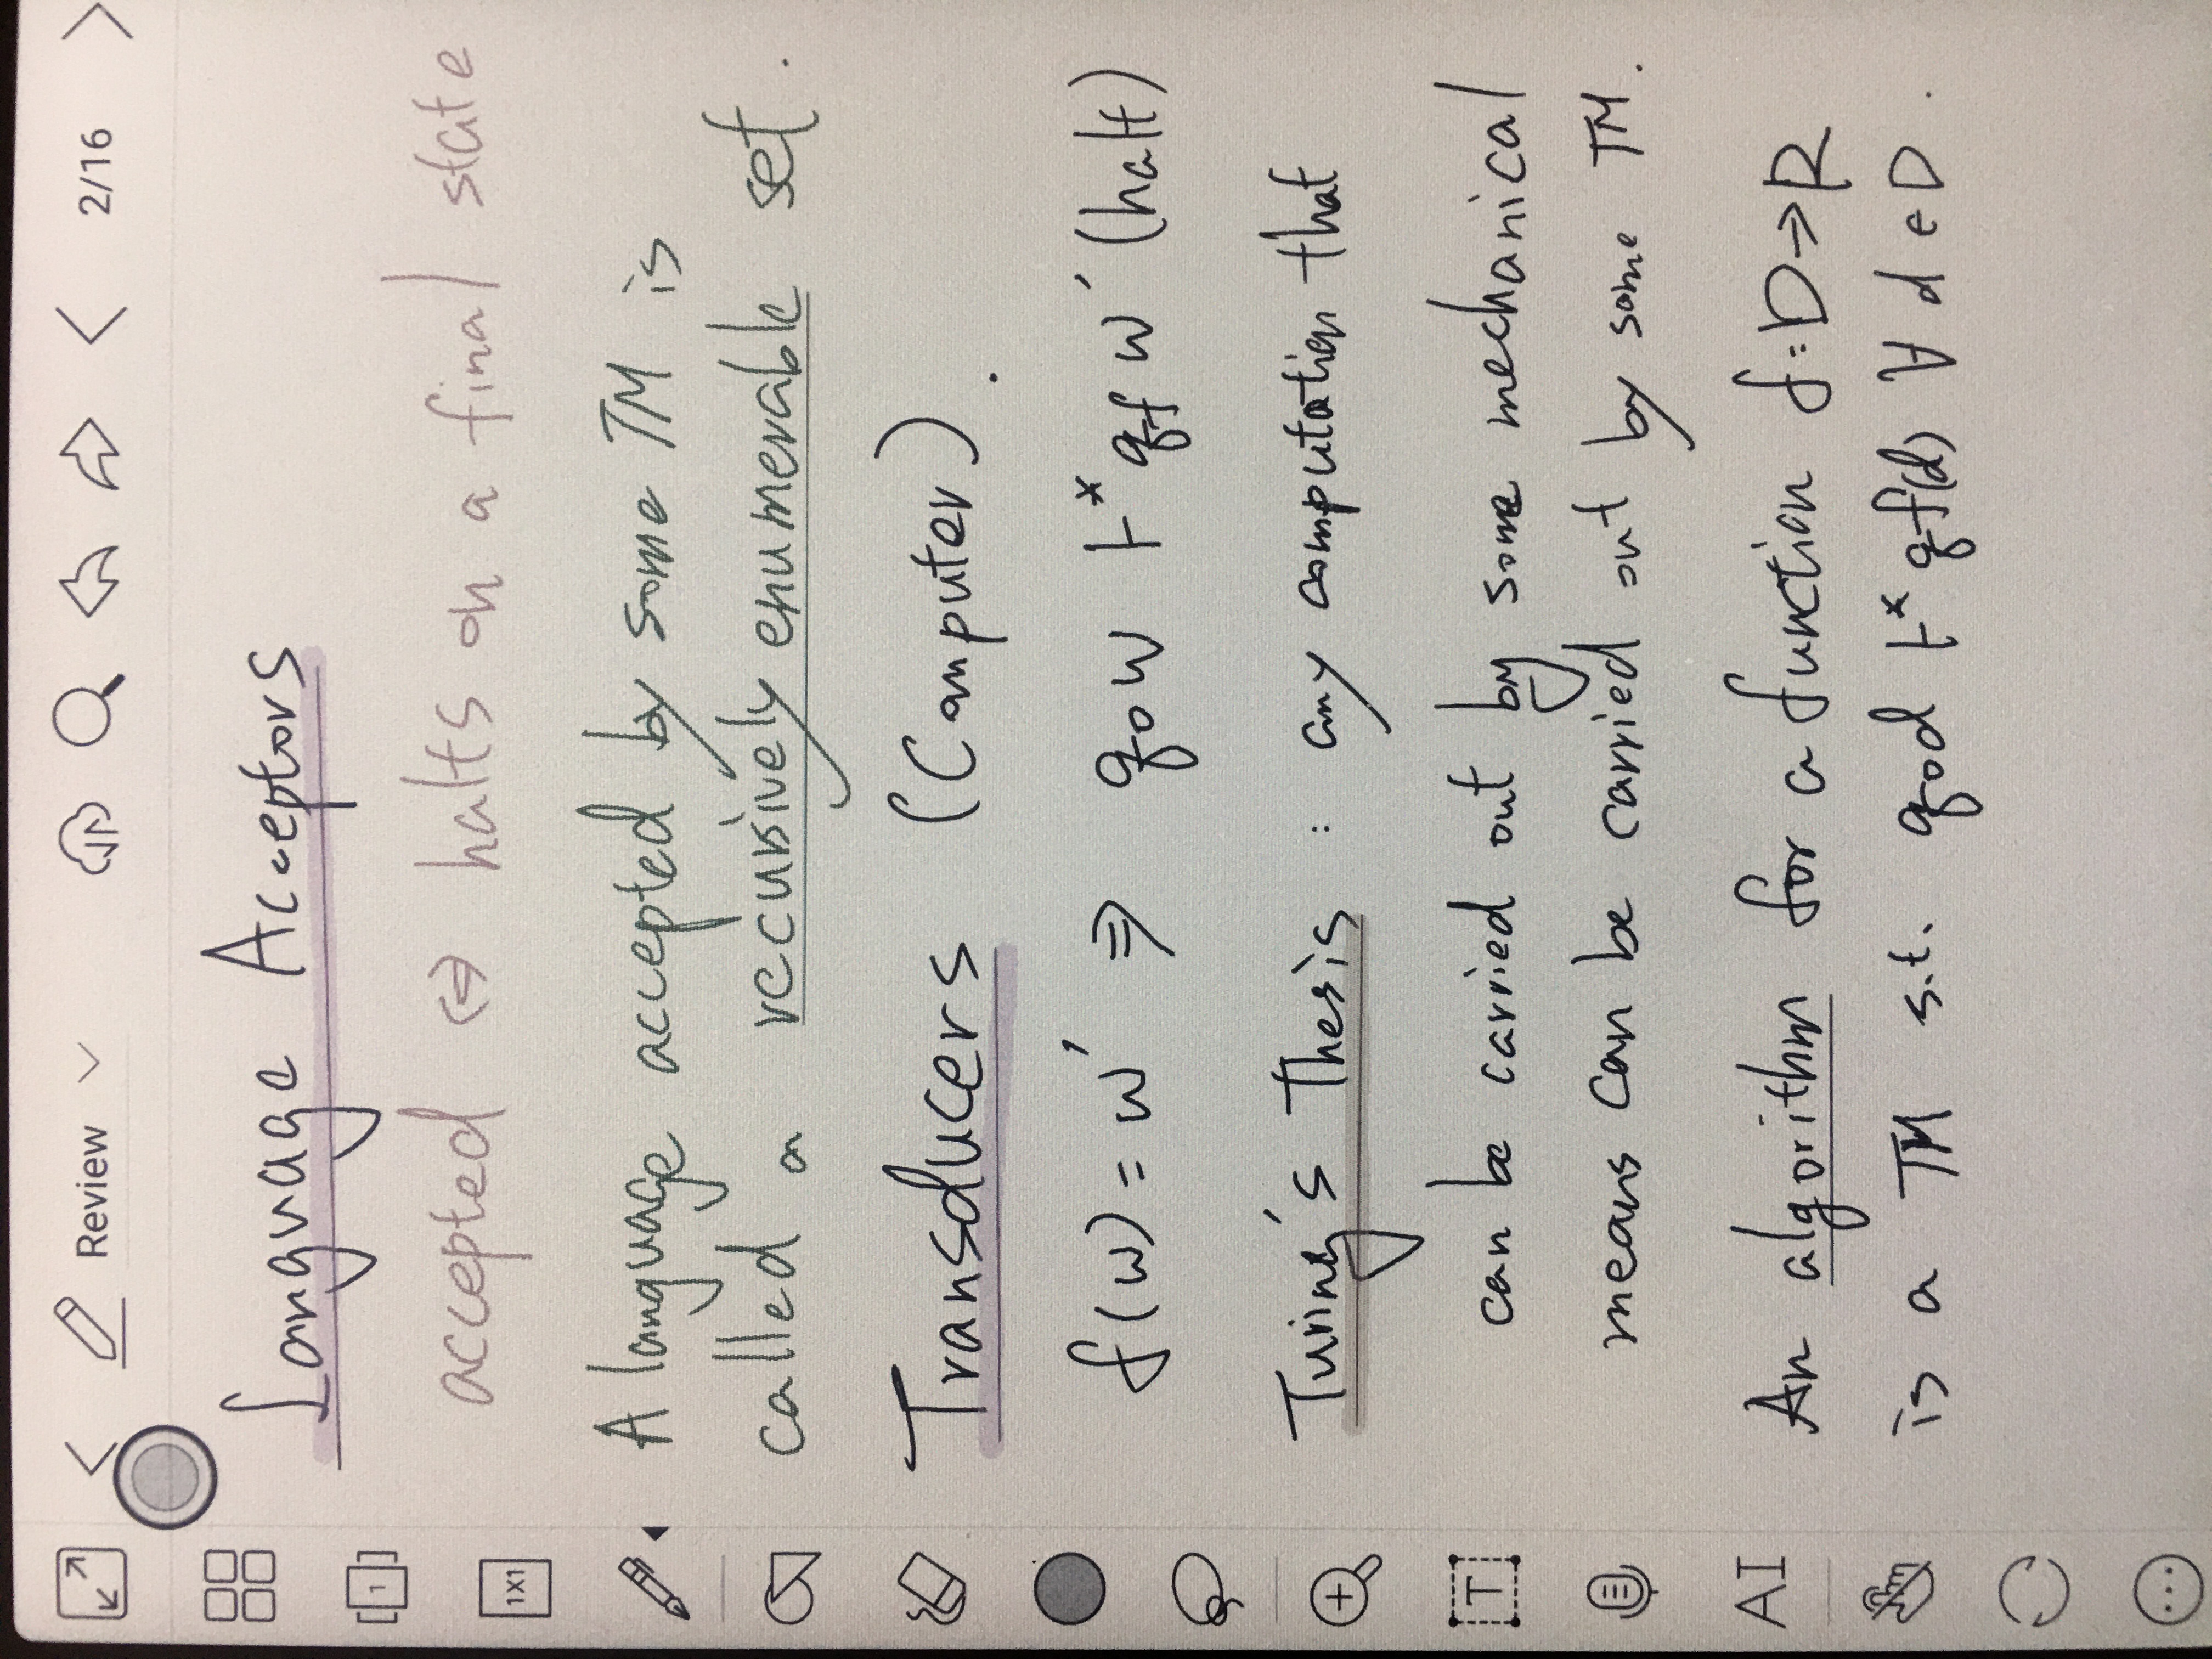 Review 2/16
Language Acceptors
1
accepted ⇔ halts on a final state
1X1
A language accepted by some TM is
called a recursively enumerable set.
Transducers (Computer).
f(w) = w' ⇒ q0w ⊢* qf w' (halt)
Turing's Thesis : any computation that
can be carried out by some mechanical
T
means can be carried out by some TM.
AI
An algorithm for a function f:D→R
is a TM s.t. q0d ⊢* qf(d) ∀ d ∈ D.